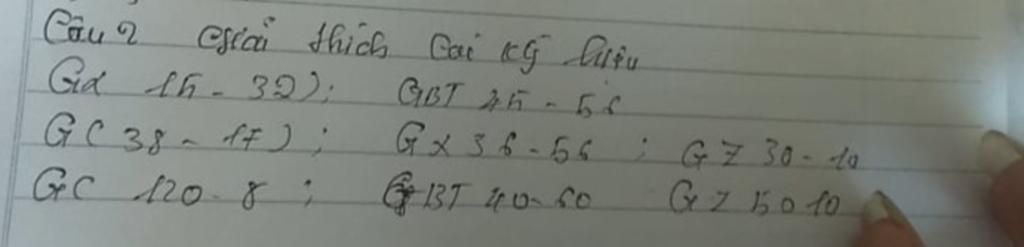 Câu 2 Giải thích Cái ký hiệu
GX 15-32); GBT 45-56
GC 38-17); GX 36-56; GZ 30-10
GC 120-8; GBT 40-60 GZ 50 10